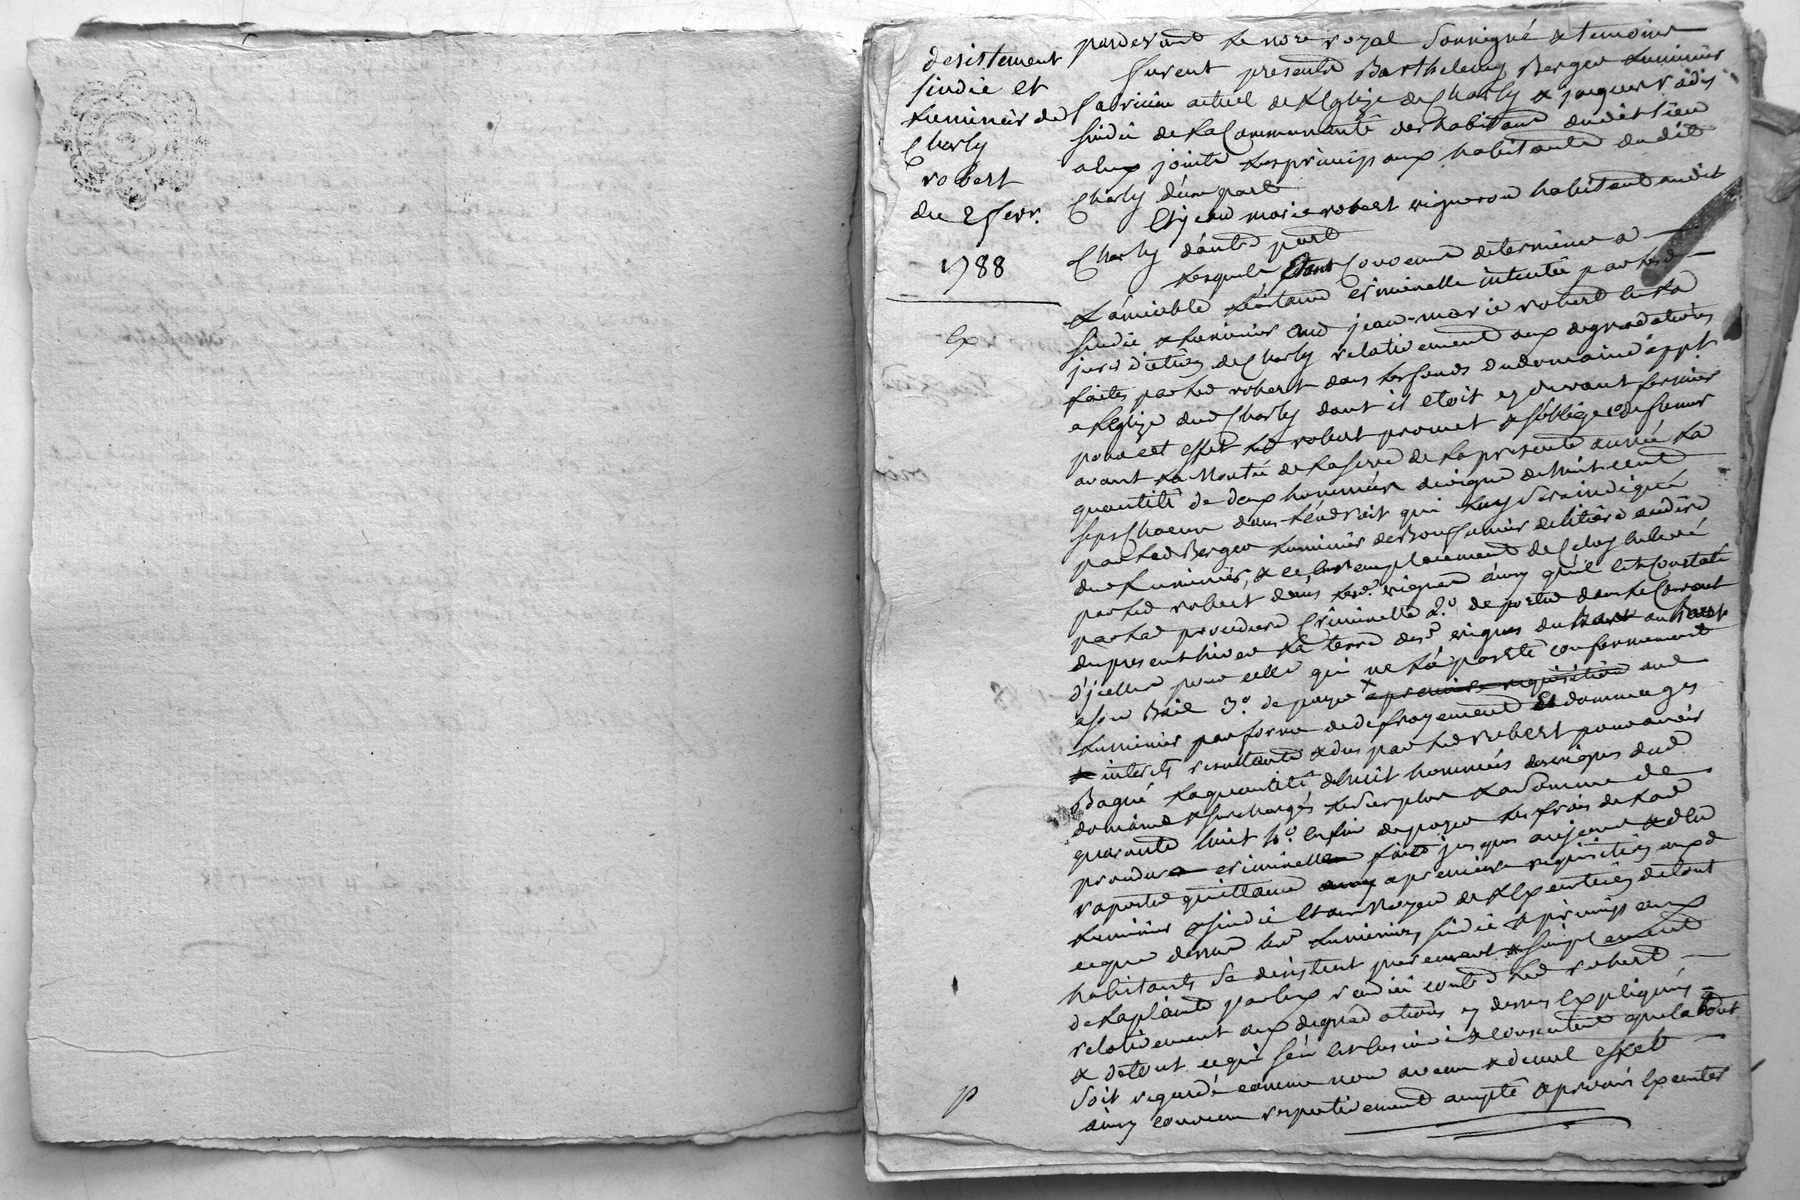 desistement
sindic et
Luminier de
Charly
robert
du 2 fevr.
1788
Ex
pardevant Le nore royal soussigné & temoins
furent presents Barthelemy Berger Luminier
fabricien actuel de L'Eglize de Charly & jacques
sindic de La Communauté des habitans dudit lieu
a eux joints Les principaux habitants dudit
Charly d'une part
Et jean marie robert vigneron habitant audit
Charly d'autre part
Lesquels Etant Convenus determiner a
L'amiable L'instance criminelle intentée par Lesd.
sindic & Luminier aud jean-marie robert En La
jurisdiction de Charly relativement aux degradations
faites par Led robert dans Les fonds du domaine appt.
a L'Eglize dud Charly dont il etoit cy devant fermier
pour cet effet Led robert promet & s'oblige 1o de
avant La Montée de La seve de La presente année La
quantité de deux hommées de vigne de huit cent
dans L'endroit qui Luy sera indiqué
par Led Berger Luminier de Bon fumier de litiere au dire
dud Luminier, & ce En remplacement de Celuy Enlevé
par Led robert dans Lesd. vignes ainsy qu'il Est Constaté
par La procedure Criminelle 2.o de porter dans Le Courant
du present hiver La terre desd. vignes du bas au haut
d'jcelles pour celle qui ne L'a porté conformement
a son Bail 3.o de payer a premiere requisition aud
Luminier par forme de defrayement de dommages
& interets resultants & dus par Led robert pour avoir
La quantité de huit hommées des vignes dud
domaine & surchargés Le surplus La Somme de
quarante huit L.o Enfin de payer Les frais de Lad
procedure criminelle faits jusques aujourd'hui & d'en
raporter quittance a premiere requisition auxd
Luminier & sindic Et au moyen de L'Execution de tout
ce que dessus Les Luminier, sindic & principaux
habitants Se desistent purement & simplement
de La plainte par Eux rendüe contre Led robert
relativement aux degradations cy dessus Expliquées
& de tout ce qui s'en Est Ensuivi & consentent que Le tout
soit regardé comme non avenu & de nul effet
ainsy convenu respectivement accepté & promis Executer